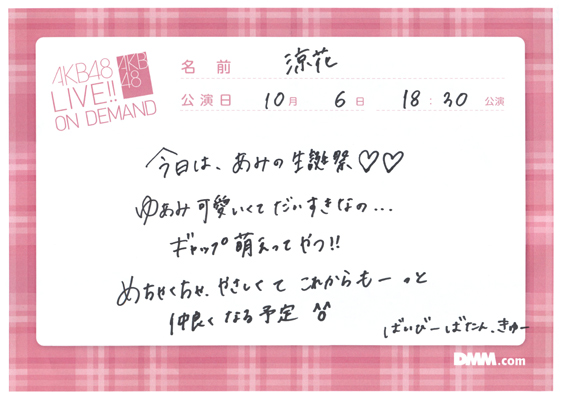 AKB48
LIVE!!
ON DEMAND
AKB
48
名前 涼花
公演日 10月 6日 18:30 公演
今日は、あみの生誕祭♡♡
ゆあみ可愛いくてだいすきなの...
ギャップ萌えってやつ!!
めちゃくちゃ、やさしくて これからもーっと
仲良くなる予定 ^o^
ばいびーばたん、きゅー
DMM.com